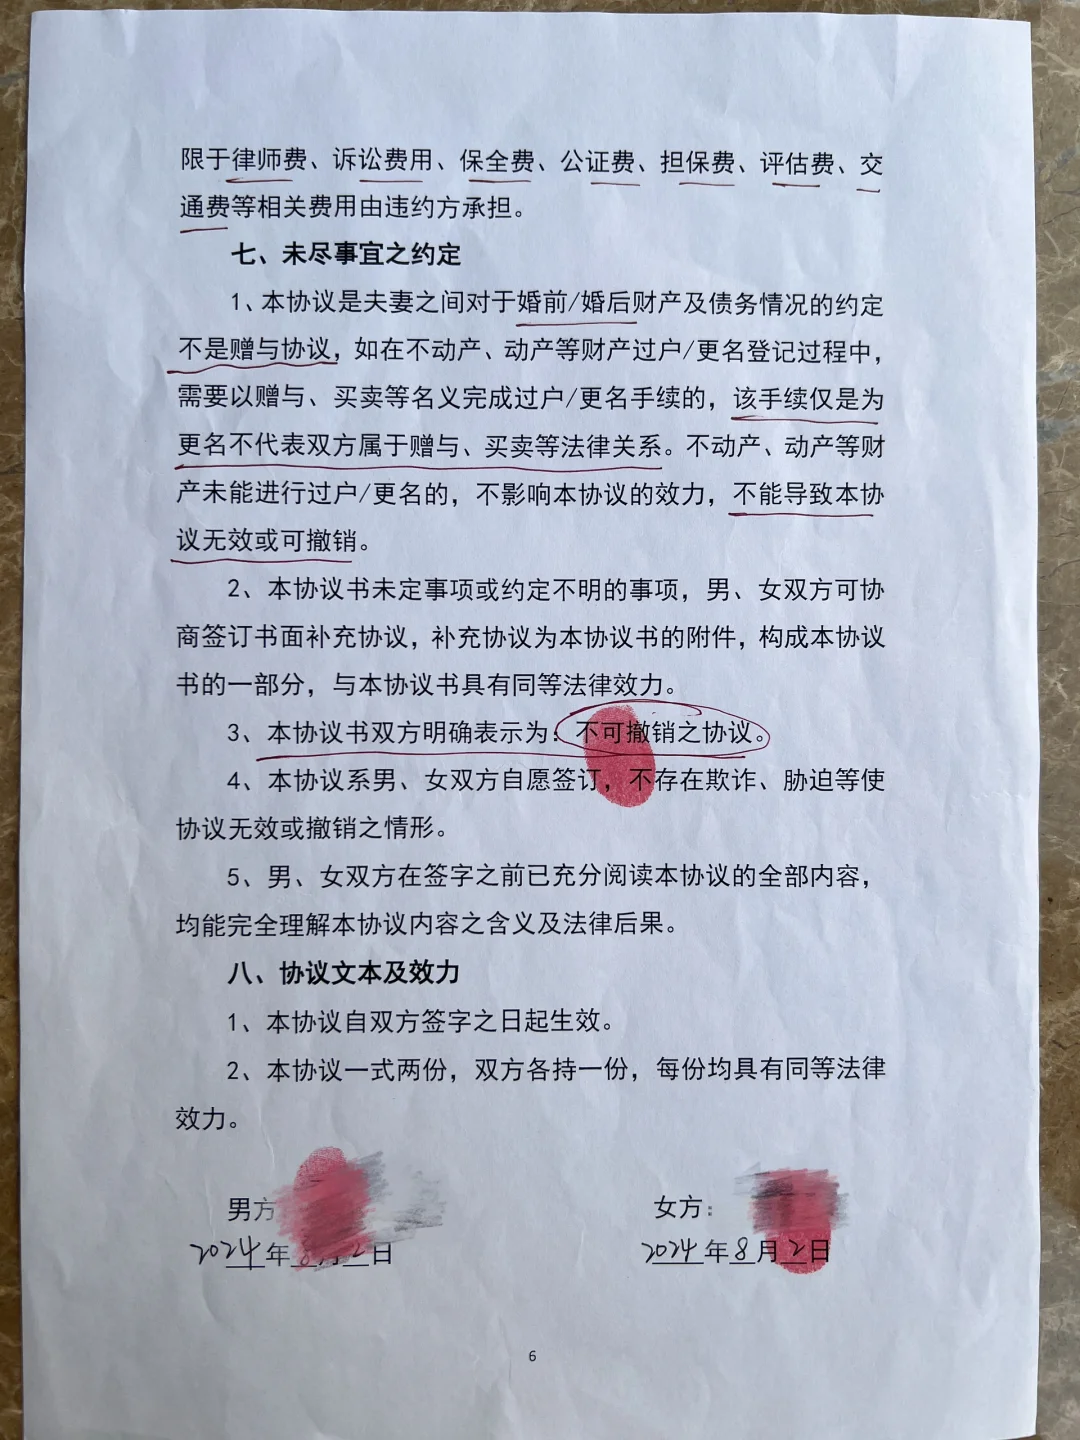 限于律师费、诉讼费用、保全费、公证费、担保费、评估费、交
通费等相关费用由违约方承担。
七、未尽事宜之约定
1、本协议是夫妻之间对于婚前/婚后财产及债务情况的约定
不是赠与协议，如在不动产、动产等财产过户/更名登记过程中，
需要以赠与、买卖等名义完成过户/更名手续的，该手续仅是为
更名不代表双方属于赠与、买卖等法律关系。不动产、动产等财
产未能进行过户/更名的，不影响本协议的效力，不能导致本协
议无效或可撤销。
2、本协议书未定事项或约定不明的事项，男、女双方可协
商签订书面补充协议，补充协议为本协议书的附件，构成本协议
书的一部分，与本协议书具有同等法律效力。
3、本协议书双方明确表示为：不可撤销之协议。
4、本协议系男、女双方自愿签订，不存在欺诈、胁迫等使
协议无效或撤销之情形。
5、男、女双方在签字之前已充分阅读本协议的全部内容，
均能完全理解本协议内容之含义及法律后果。
八、协议文本及效力
1、本协议自双方签字之日起生效。
2、本协议一式两份，双方各持一份，每份均具有同等法律
效力。
男方 女方：
2024年8月2日 2024年8月2日
6